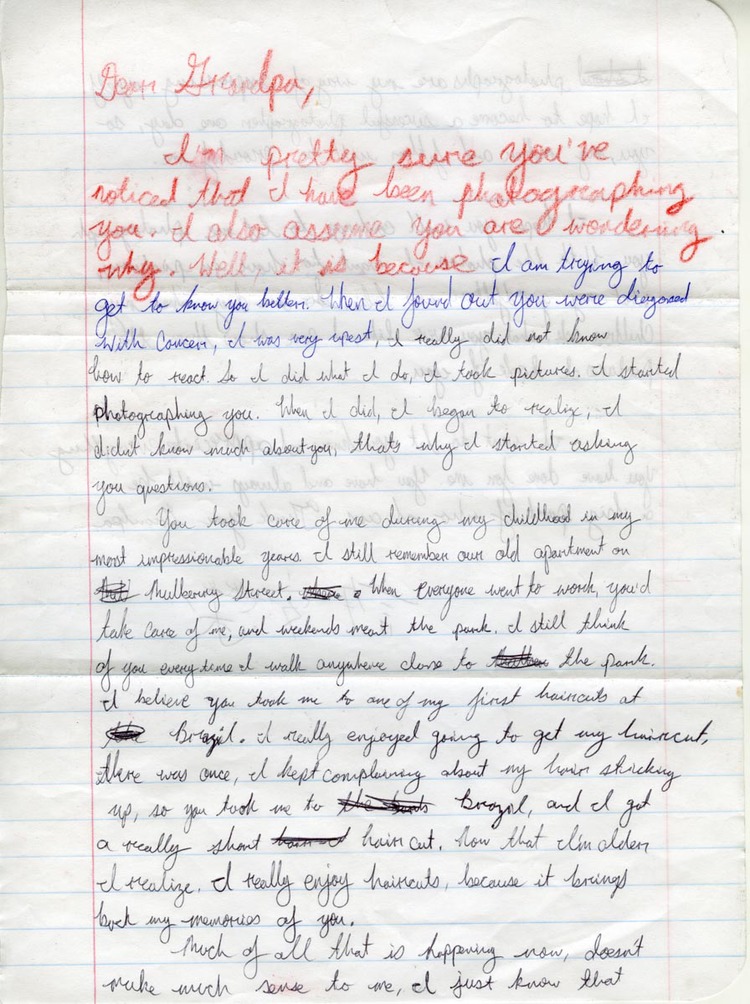 Dear Grandpa,
I'm pretty sure you've
noticed that I have been photographing
you. I also assume you are wondering
why. Well it is because I am trying to
get to know you better. When I found out you were diegnosed
with Cancer, I was very upset, I really did not know
how to react. So I did what I do, I took pictures. I started
photographing you. When I did, I began to realize, I
didn't know much about you, thats why I started asking
you questions.
You took care of me during my childhood in my
most impressionable years. I still remember our old apartment on
Mulberry Street. When everyone went to work, you'd
take care of me, and weekends meant the park. I still think
of you everytime I walk anywhere close to the park.
I believe you took me to one of my first haircuts at
Brazil. I really enjoyed going to get my haircut,
there was once, I kept complaining about my hair sticking
up, so you took me to Brazil, and I got
a really short hair cut. Now that I'm older
I realize, I really enjoy haircuts, because it brings
back my memories of you.
Much of all that is happening now, doesn't
make much sense to me, I just know that